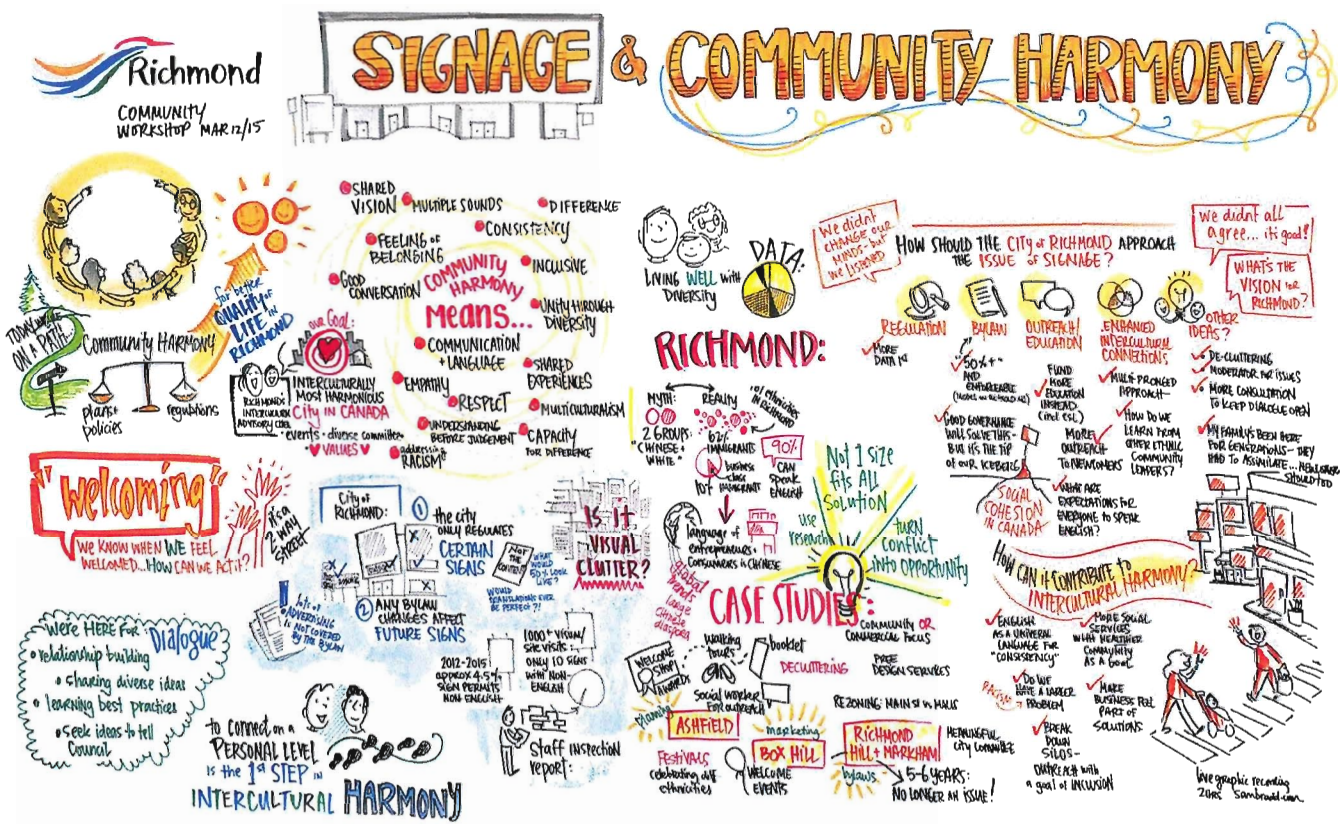 Richmond
COMMUNITY
WORKSHOP MAR 12/15
SIGNAGE & COMMUNITY HARMONY
TODAY WE'RE
ON A PATH
Community HARMONY
plans +
policies
regulations
for better
QUALITY of
LIFE in
RICHMOND
OUR GOAL:
RICHMOND
INTERCULTURAL
ADVISORY
INTERCULTURALLY
MOST HARMONIOUS
City in CANADA
events · diverse committee
VALUES
COMMUNITY
HARMONY
MEANS...
SHARED
VISION
MULTIPLE SOUNDS
DIFFERENCE
CONSISTENCY
FEELING OF
BELONGING
INCLUSIVE
GOOD
CONVERSATION
UNITY THROUGH
DIVERSITY
COMMUNICATION
+ LANGUAGE
SHARED
EXPERIENCES
EMPATHY
RESPECT
MULTICULTURALISM
UNDERSTANDING
BEFORE JUDGEMENT
CAPACITY
FOR DIFFERENCE
addressing
RACISM
"welcoming"
WE KNOW WHEN WE FEEL
WELCOMED...HOW CAN WE ACT IT?
it's a
2 WAY
STREET
We're HERE FOR Dialogue
• relationship building
• sharing diverse ideas
• learning best practices
• seek ideas to tell
Council
City of
RICHMOND:
1 the city
ONLY REGULATES
CERTAIN
SIGNS
NOT
THE
CONTENT
WHAT
WOULD
50% LOOK
LIKE?
WOULD
TRANSLATIONS EVER
BE PERFECT?!
2 ANY BYLAW
CHANGES AFFECT
FUTURE SIGNS
! lots of
ADVERTISING
IS NOT COVERED
BY THE BYLAW
IS IT
VISUAL
CLUTTER?
2012-2015
approx 4.5%
SIGN PERMITS
NON ENGLISH
1000+ VISUAL/
site VISITS
ONLY 10 SIGNS
with NON-
ENGLISH
Staff inspection
report:
to connect on a
PERSONAL LEVEL
is the 1st STEP in
INTERCULTURAL HARMONY
LIVING WELL with
DIVERSITY
DATA:
RICHMOND:
MYTH:
2 GROUPS:
"CHINESE +
WHITE"
REALITY
161 ethnicities
IN RICHMOND
62%
IMMIGRANTS
business
class
IMMIGRANTS
90%
CAN
SPEAK
ENGLISH
language of
entrepreneurs +
consumers is CHINESE
global
trends
large
chinese
diaspora
Not 1 size
fits ALL
SOLUTION
use
research
TURN
CONFLICT
into OPPORTUNITY
CASE STUDIES:
COMMUNITY OR
COMMERCIAL FOCUS
WELCOME
SHOP
AWARDS
walking
tours
booklet
DECLUTTERING
FREE
DESIGN SERVICES
social worker
FOR OUTREACH
REZONING: MAIN ST vs MALLS
planning
ASHFIELD
FESTIVALS
celebrating diff
ethnicities
marketing
BOX HILL
WELCOME
EVENTS
RICHMOND
HILL + MARKHAM
bylaws
MEANINGFUL
CITY COMMITTEE
5-6 YEARS:
NO LONGER AN ISSUE!
We didn't
CHANGE OUR
MINDS - but
WE LISTENED
HOW SHOULD THE CITY of RICHMOND APPROACH
THE ISSUE OF SIGNAGE?
We didn't all
agree... it's good!
WHAT'S THE
VISION for
RICHMOND?
REGULATION
MORE
DATA
BYLAW
50% +
AND
ENFORCEABLE
GOOD GOVERNANCE
WILL SOLVE THIS -
BUT IT'S THE TIP
of OUR ICEBERG
SOCIAL
COHESION
IN CANADA
OUTREACH/
EDUCATION
FUND
MORE
EDUCATION
INSTEAD
(incl. ESL)
MORE
OUTREACH
TO NEWCOMERS
ENHANCED
INTERCULTURAL
CONNECTIONS
MULTI-PRONGED
APPROACH
HOW DO WE
LEARN FROM
OTHER ETHNIC
COMMUNITY
LEADERS?
WHAT ARE
EXPECTATIONS FOR
EVERYONE TO SPEAK
ENGLISH?
OTHER
IDEAS?
DE-CLUTTERING
MODERATOR FOR ISSUES
MORE CONSULTATION
TO KEEP DIALOGUE OPEN
MY FAMILY'S BEEN HERE
FOR GENERATIONS - THEY
HAD TO ASSIMILATE... NEWCOMERS
SHOULD TOO
HOW CAN it CONTRIBUTE to
INTERCULTURAL HARMONY?
ENGLISH
AS A UNIVERSAL
LANGUAGE FOR
"CONSISTENCY"
MORE SOCIAL
SERVICES
WITH HEALTHIER
COMMUNITY
AS A GOAL
RACISM?
DO WE
HAVE A LARGER
PROBLEM
MAKE
BUSINESS FEEL
PART OF
SOLUTIONS
BREAK
DOWN
SILOS -
OUTREACH with
a goal of INCLUSION
live graphic recording
2HRS